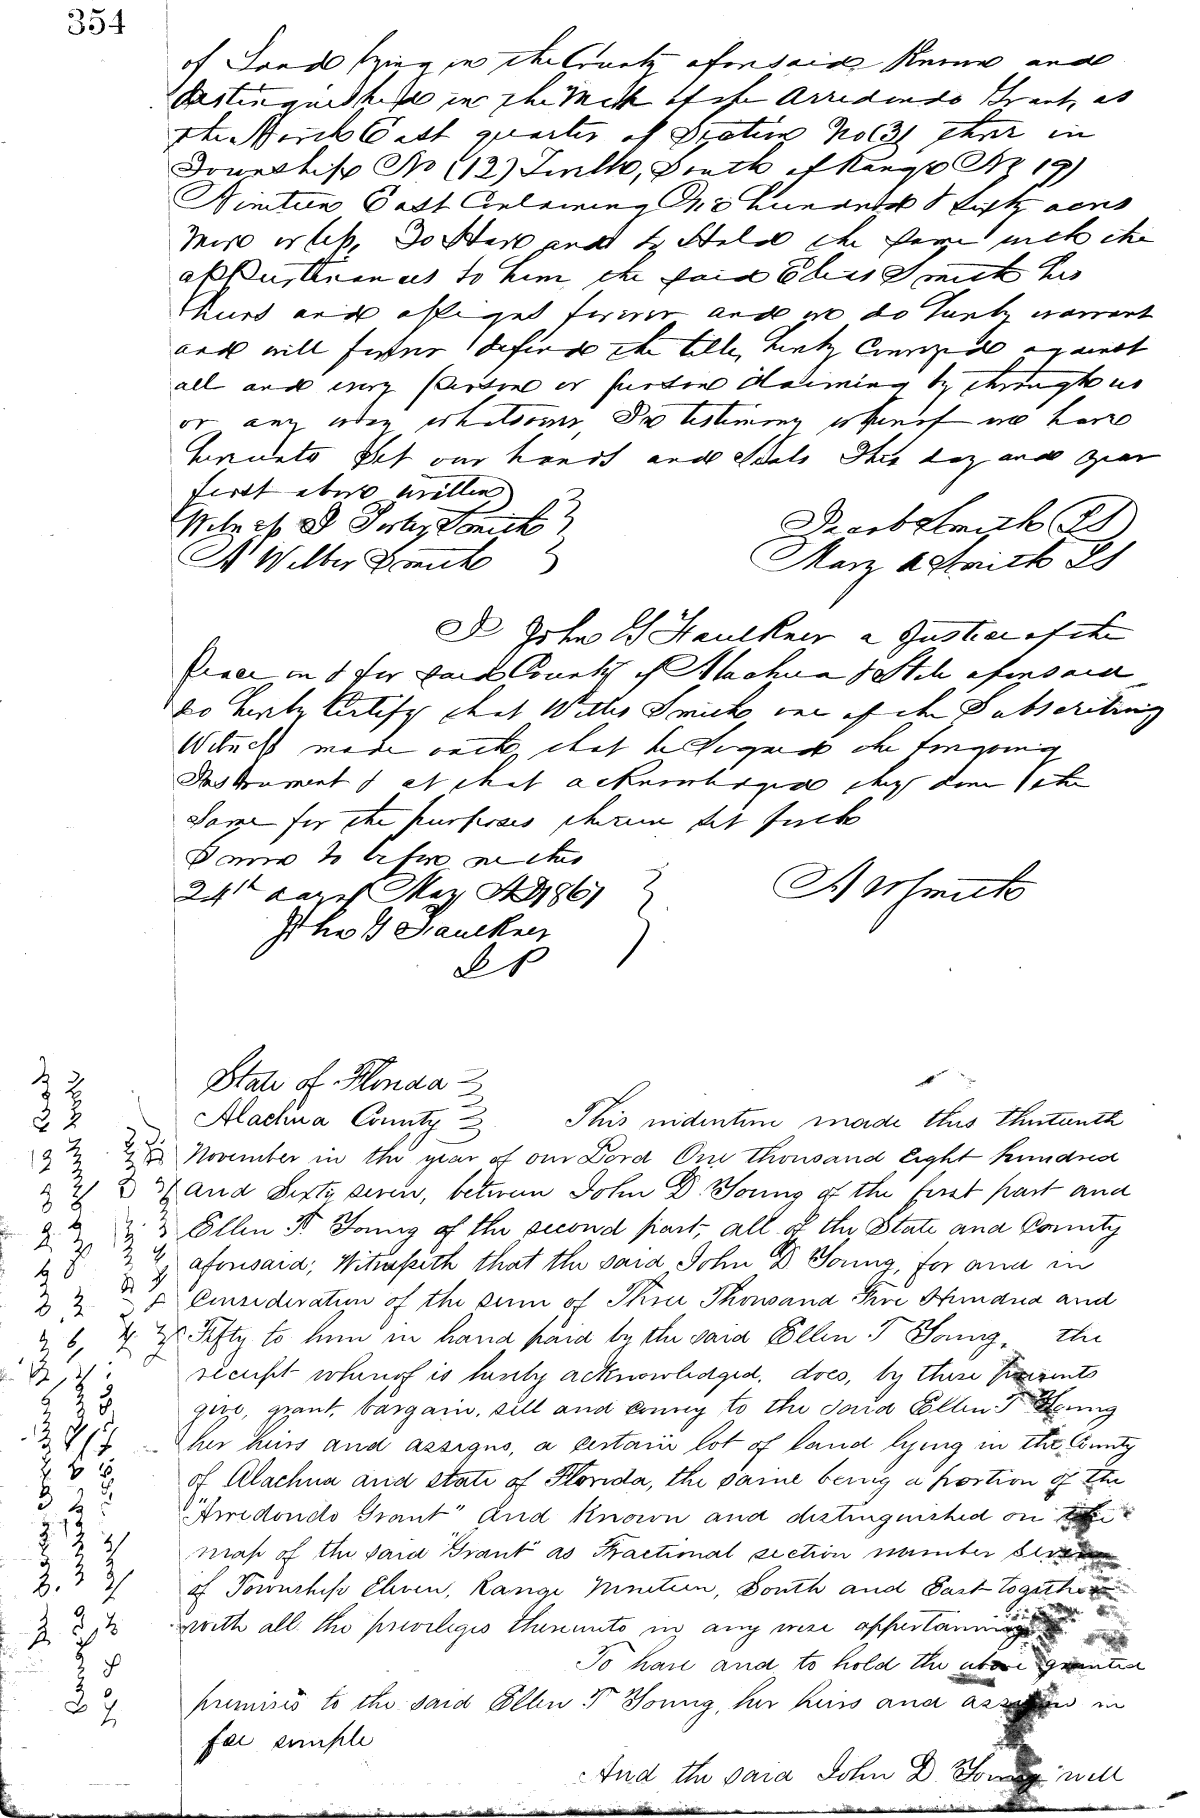 354
of Land lying in the County aforesaid Known and
distinguished in the of the Arredondo Grant, as
the North East quarter of Section No (3) three in
Township No (12) Twelve, South of Range No 19)
Nineteen East Containing One hundred & Sixty acres
More or less, To Have and to Hold the same with the
appurtenances to him the said Elias Smith his
heirs and assigns forever and we do hereby warrant
and will forever defend the title, hereby Conveyed against
all and every person or persons Claiming by through us
or any way whatsoever, In testimony whereof we have
hereunto set our hands and seals This day and year
first above written
Witness Smith
A Wilber Smith
Jacob Smith LS
Mary A Smith LS
I John G Faulkner a Justice of the
Peace in & for said County of Alachua & State aforesaid
do hereby Certify that Smith one of the Subscribing
Witness made oath that he Signed the foregoing
Instrument & at that acknowledged they done the
Same for the purposes therein set forth
Sworn to before me this
24th day of May AD 1867
A W Smith
John G Faulkner
J P
State of Florida
Alachua County This indenture made this thirteenth
November in the year of our Lord One thousand Eight hundred
and Sixty seven, between John D Young of the first part and
Ellen T Young of the second part, all of the State and County
aforesaid; Witnesseth that the said John D Young, for and in
Consideration of the sum of Three Thousand Five Hundred and
Fifty to him in hand paid by the said Ellen T Young, the
receipt whereof is hereby acknowledged, does, by these presents
give, grant, bargain, sell and convey to the said Ellen T Young
her heirs and assigns, a certain lot of land lying in the County
of Alachua and state of Florida, the same being a portion of the
"Arredondo Grant" and Known and distinguished on the
map of the said "Grant" as Fractional section number Seven
of Township Eleven, Range Nineteen, South and East together
with all the privileges thereunto in any wise appertaining
To have and to hold the above granted
premises to the said Ellen T Young, her heirs and assigns in
fee simple
And the said John D Young will